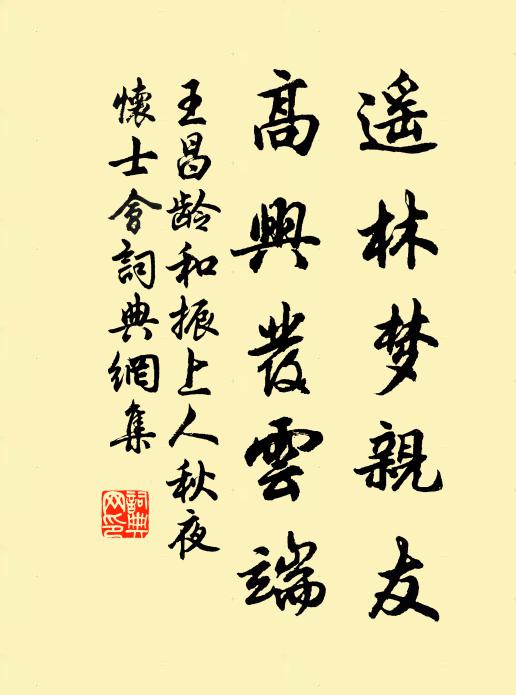 遥林梦親友
高興發雲端
王昌龄和振上人秋夜
懷士會詞典網集
詞典网印